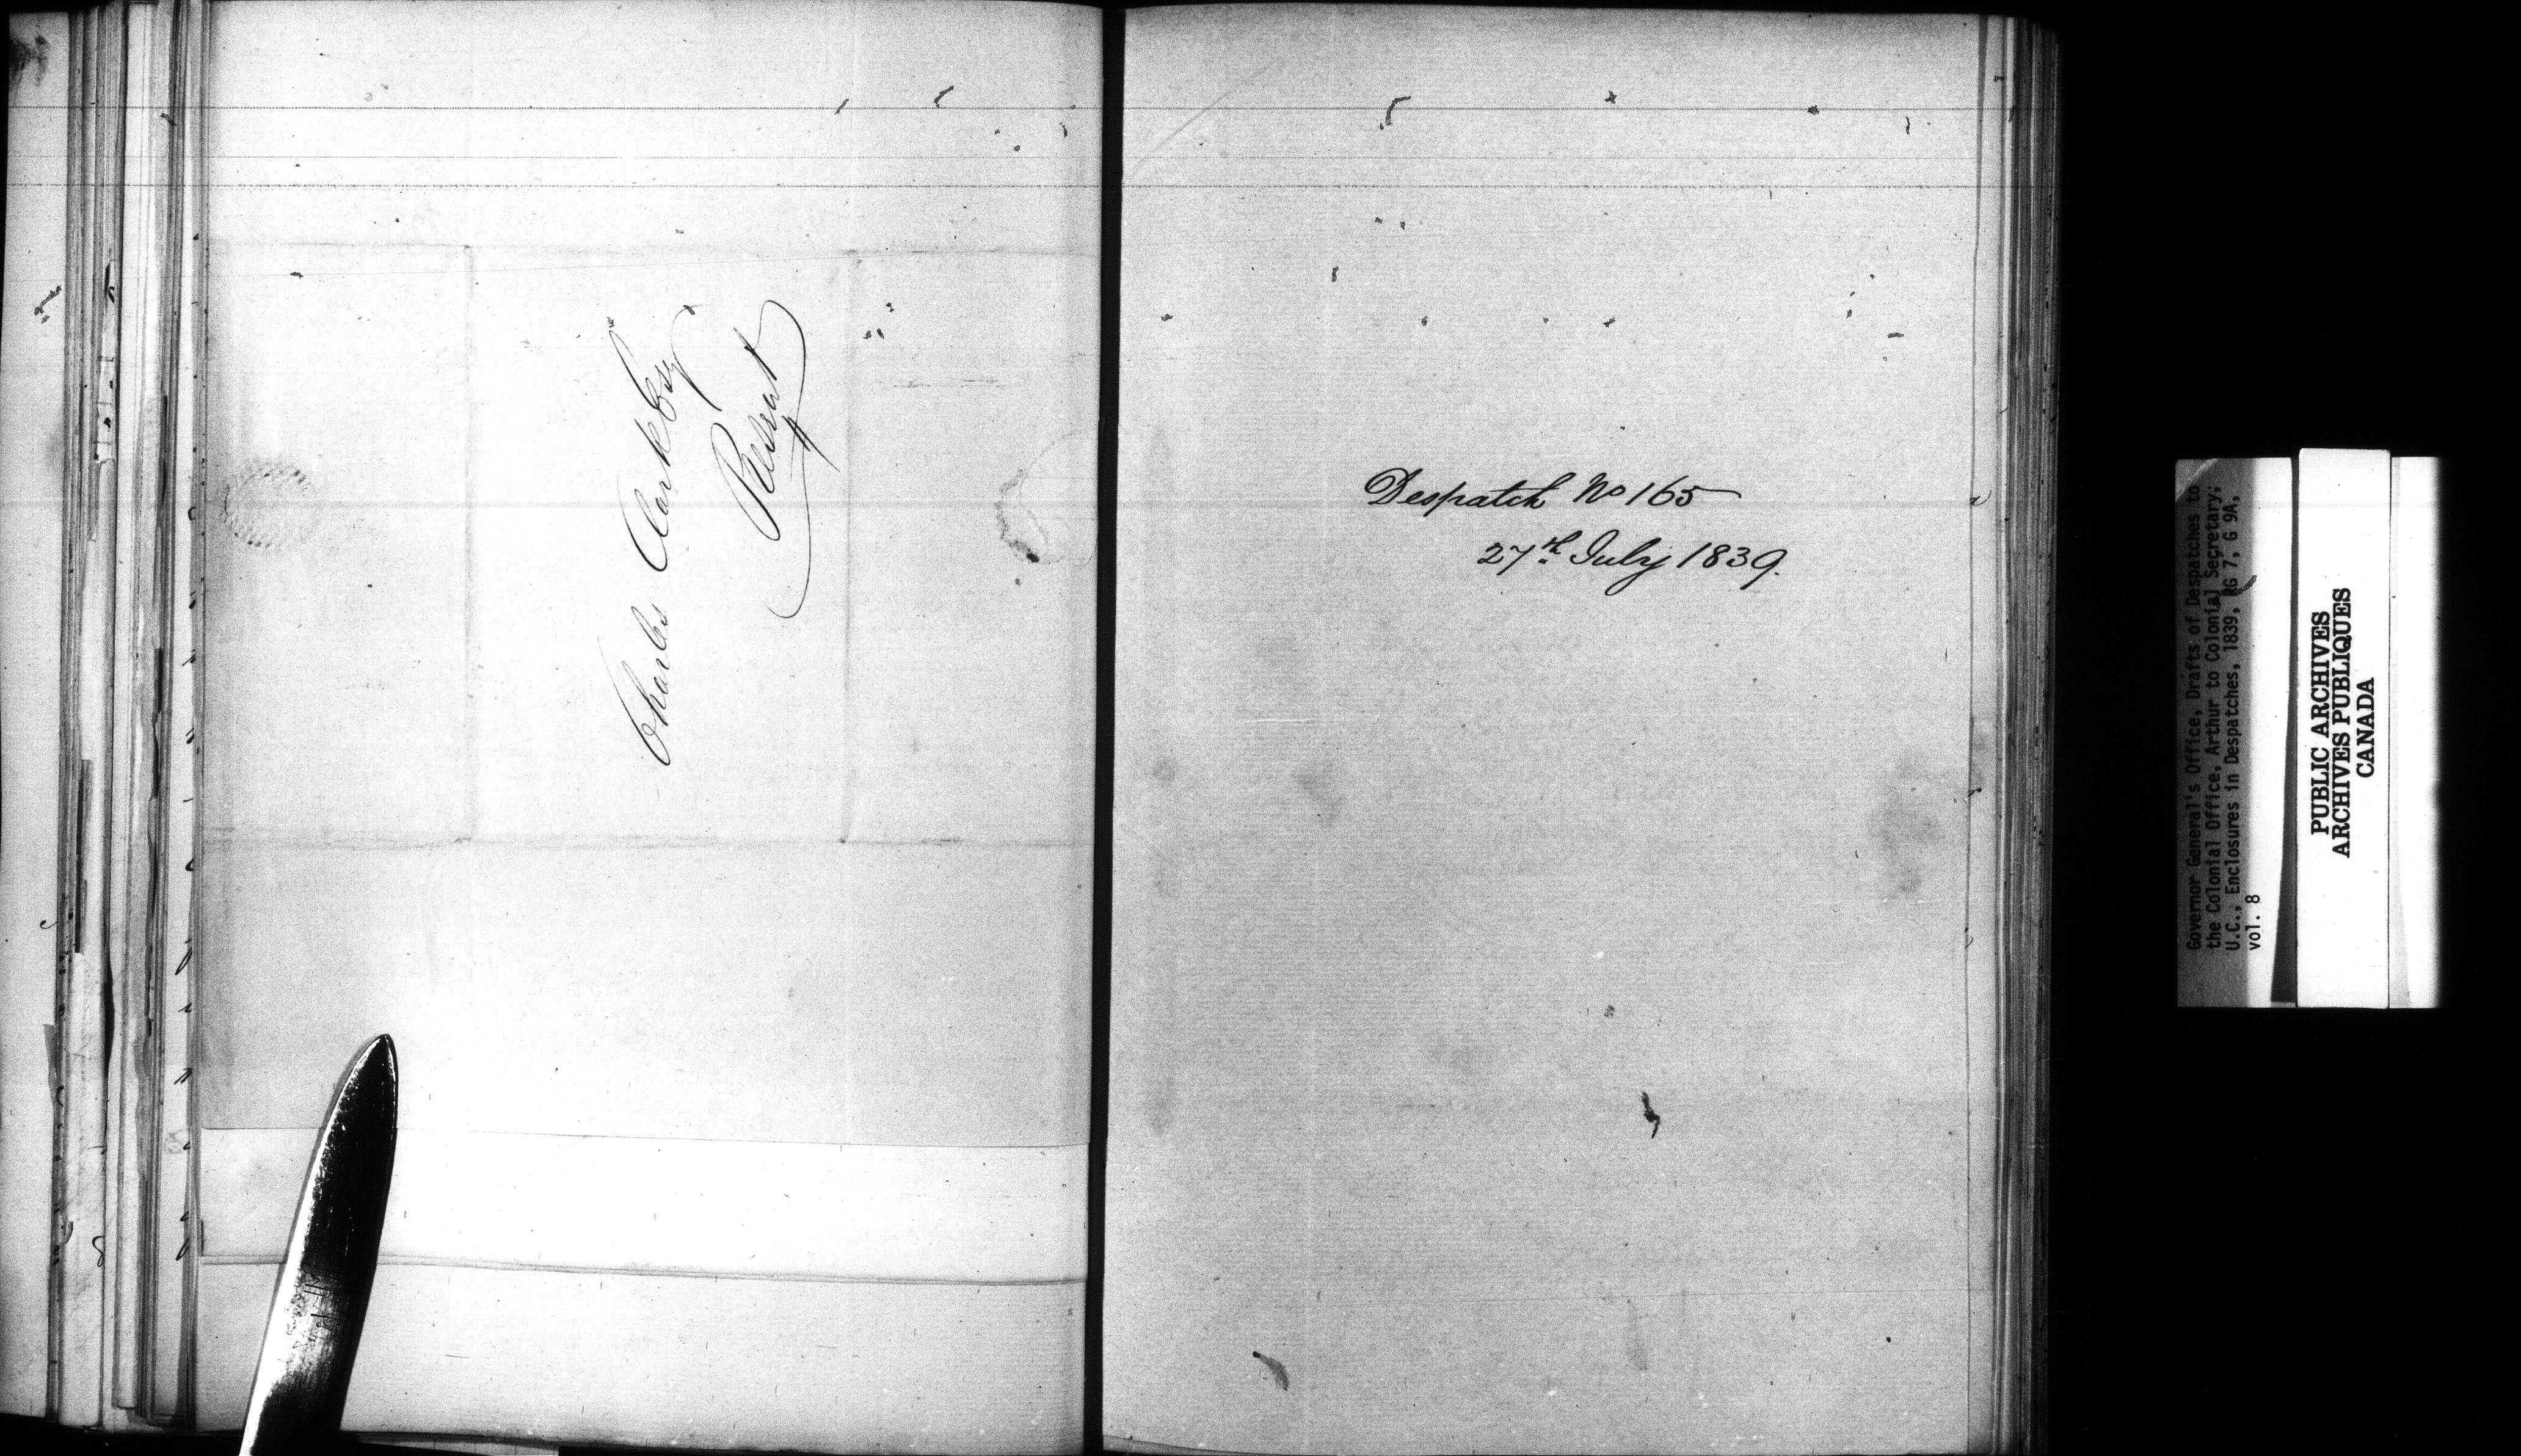 Charles Clark Esq
Present
Despatch No 165
27th July 1839.
Governor General's Office, Drafts of Despatches to
the Colonial Office, Arthur to Colonial Secretary;
U.C., Enclosures in Despatches, 1839, RG 7, G 9A,
vol. 8
PUBLIC ARCHIVES
ARCHIVES PUBLIQUES
CANADA